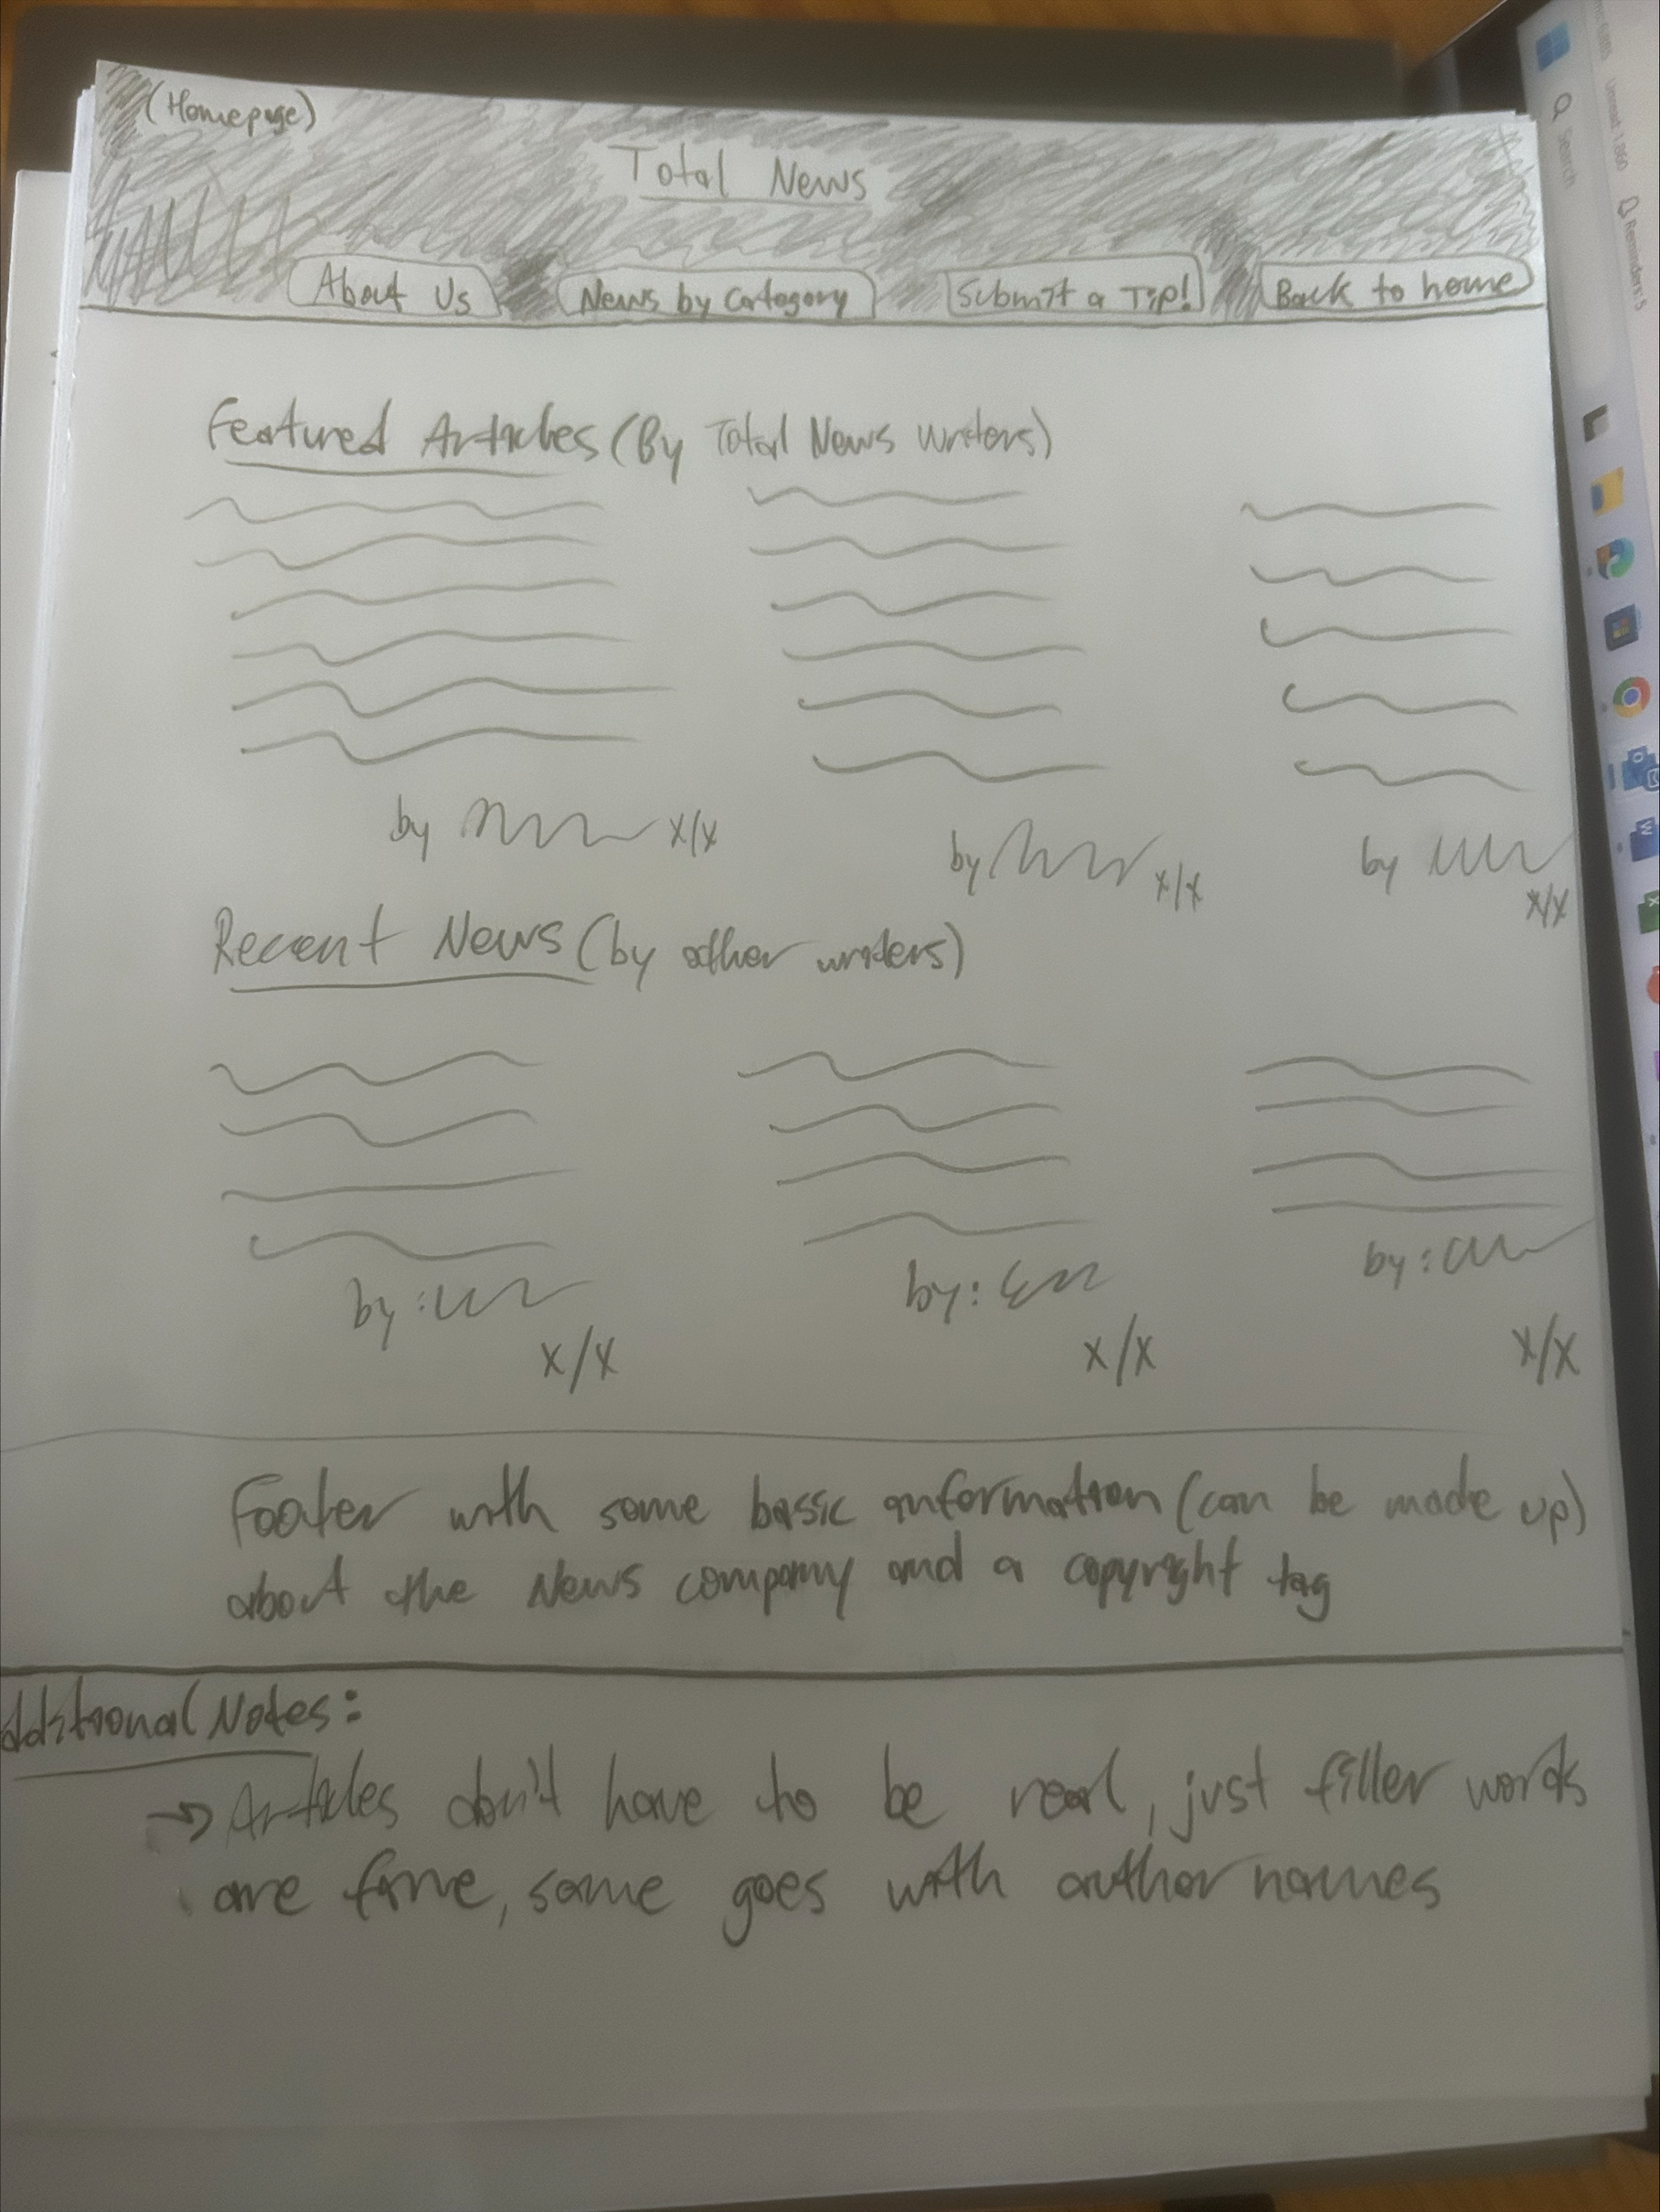 (Homepage)
Total News
About Us
News by Category
Submit a Tip!
Back to home
Featured Articles (By Total News writers)
by x/x
by x/x
by x/x
Recent News (by other writers)
by:
x/x
by:
x/x
by:
x/x
Footer with some basic information (can be made up)
about the News company and a copyright tag
dditional Notes:
→ Articles don't have to be real, just filler words
are fine, same goes with author names
Search
Reminders 5